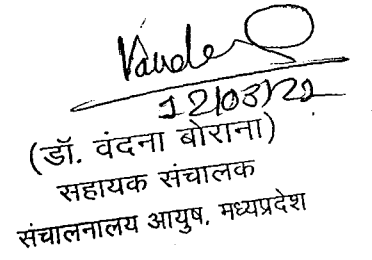 Vande
12/03/22
(डॉ. वंदना बोराना)
सहायक संचालक
संचालनालय आयुष, मध्यप्रदेश